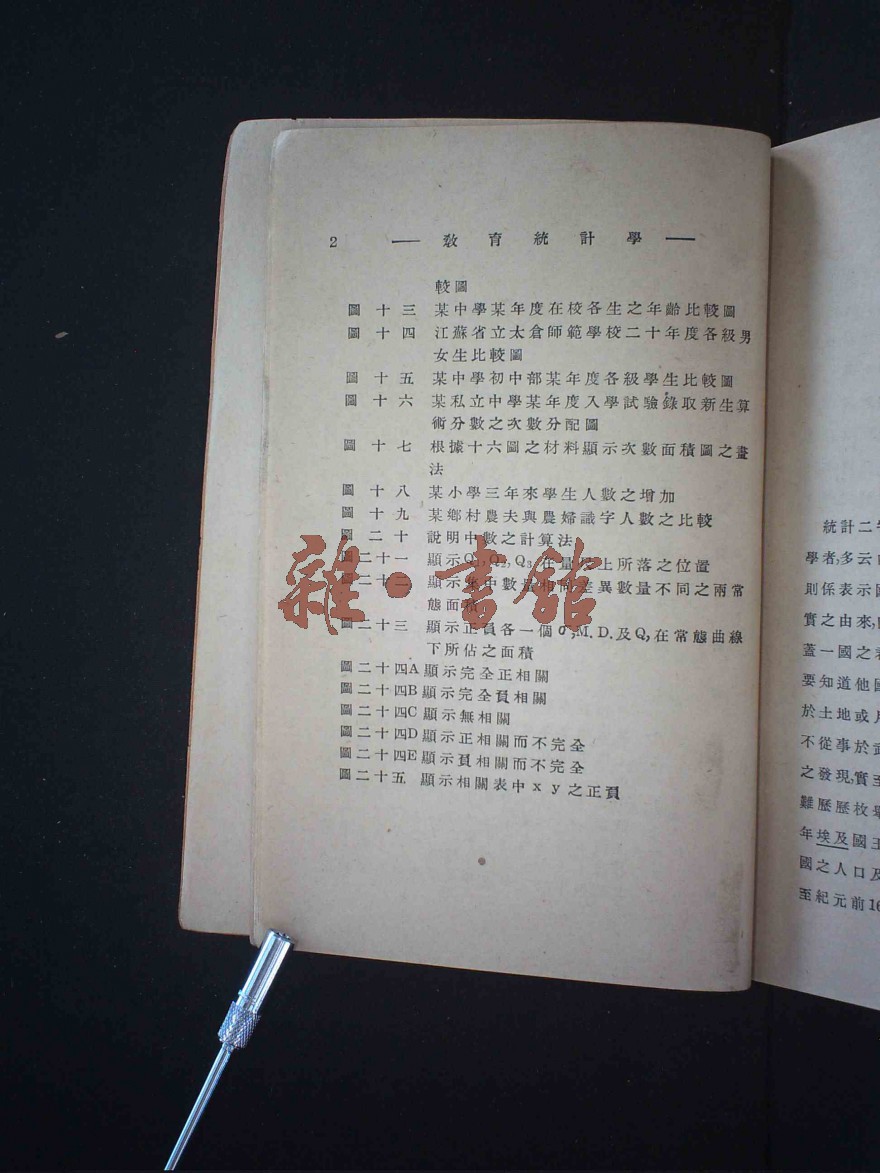 2 — 教育統計學 —
較圖
圖十三 某中學某年度在校各生之年齡比較圖
圖十四 江蘇省立太倉師範學校二十年度各級男
女生比較圖
圖十五 某中學初中部某年度各級學生比較圖
圖十六 某私立中學某年度入學試驗錄取新生算
術分數之次數分配圖
圖十七 根據十六圖之材料顯示次數面積圖之畫
法
圖十八 某小學三年來學生人數之增加
圖十九 某鄉村農夫與農婦識字人數之比較
圖二十 說明中數之計算法
圖二十一 顯示Q1,Q2,Q3,在量尺上所落之位置
圖二十二 顯示集中數量相同差異數量不同之兩常
態面積
圖二十三 顯示正負各一個σ,M.D.及Q,在常態曲線
下所佔之面積
圖二十四A 顯示完全正相關
圖二十四B 顯示完全負相關
圖二十四C 顯示無相關
圖二十四D 顯示正相關而不完全
圖二十四E 顯示負相關而不完全
圖二十五 顯示相關表中xy之正負
雜·書館
統計二
學者,多云
則係表示
實之由來,
蓋一國之
要知道他國
於土地或
不從事於
之發現,實至
難歷歷枚舉
年埃及國王
國之人口及
至紀元前16